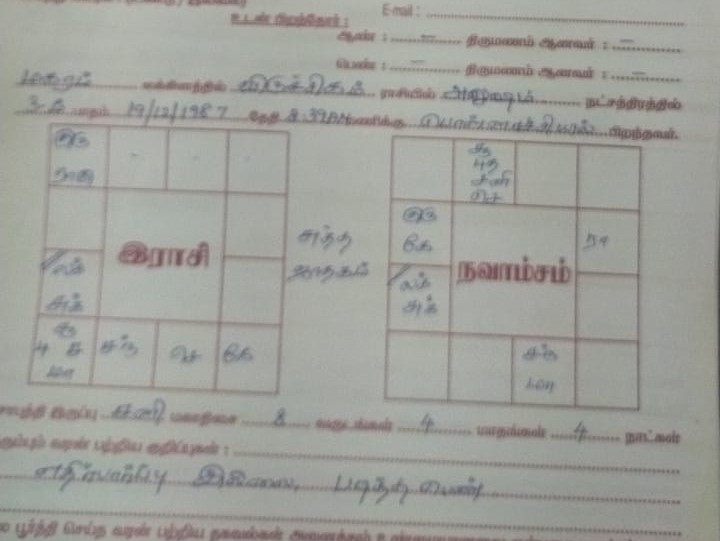 E-mail :
உடன் பிறந்தோர் :
ஆண் : – திருமணம் ஆனவர் : –
பெண் : – திருமணம் ஆனவர் : –
மகரம் லக்கினத்தில் விருச்சிகம் ராசியில் அனுஷம் நட்சத்திரத்தில்
3-ம் பாதம் 19/12/1987 தேதி 8.39AM மணிக்கு பொள்ளாச்சியில் பிறந்தவர்.
குரு
ராகு
இராசி
லக்
சுக்
சூ
பு ச
மா
சந்
செ
கே
சுத்த
ஜாதகம்
சூ
புத
சனி
செ
குரு
கே
நவாம்சம்
ரா
லக்
சுக்
சந்
மா
இருப்பு சனி மகாதிசை 8 வருடங்கள் 4 மாதங்கள் 4 நாட்கள்
வரன் பற்றிய குறிப்புகள் :
எதிர்பார்ப்பு இல்லை, படித்த பெண்
பூர்த்தி செய்த வரன் பற்றிய தகவல்கள் அனைத்தும்